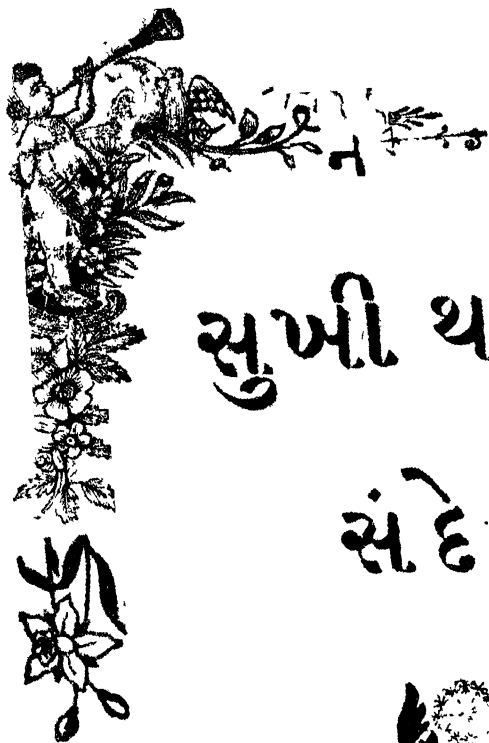 સુખી થ
સંદે